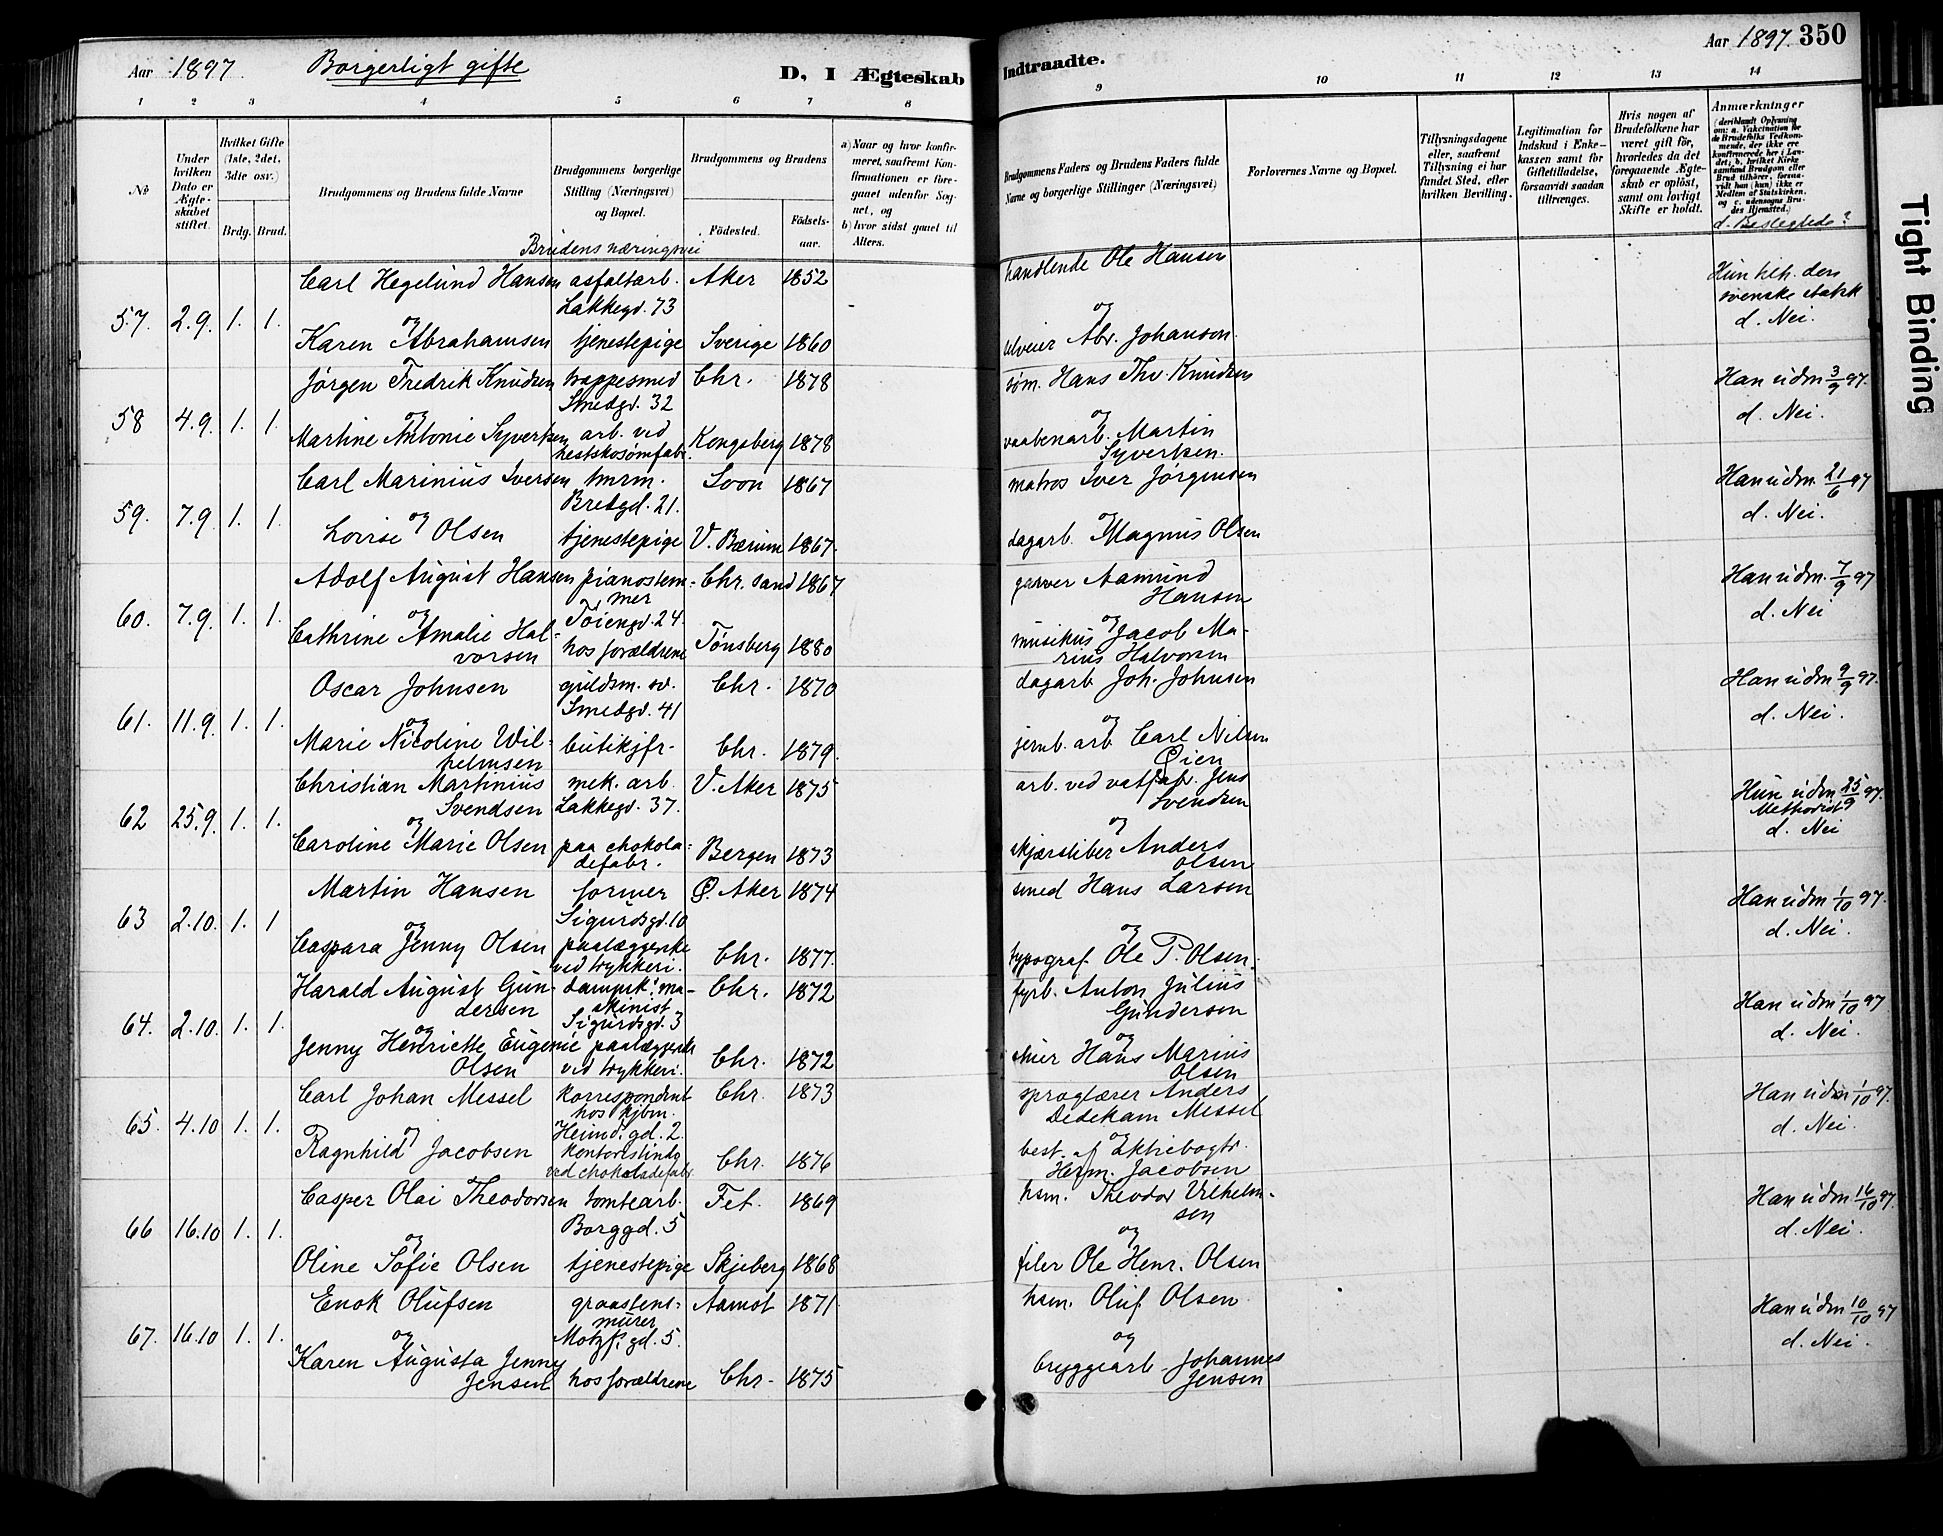 Aar 1897. Borgerligt gifte D, I Ægteskab
1 2 3 4 5 6 7 8
№
Under hvilken Dato er Ægteskabet stiftet.
Hvilket Gifte (1ste, 2det, 3dte osv.)
Brdg. Brud.
Brudgommens og Brudens fulde Navne
Brudgommens borgerlige Stilling (Næringsvei) og Bopæl.
Brudens næringsvei
Brudgommens og Brudens
Födested. Födselsaar.
a) Naar og hvor konfirmeret, saafremt Konfirmationen er foregaaet udenfor Sognet, og
b) hvor sidst gaaet til Alters.
57. 2.9. 1. 1.
Carl Hegelund Hansen asfaltarb. Aker 1852
Lakkegd. 73
og
Karen Abrahamsen tjenestepige Sverige 1860
58 4.9. 1. 1.
Jørgen Fredrik Knudsen trappesmed Chr. 1878
Smedgd. 32
og
Martine Antonie Syvertsen arb. ved Kongsberg 1878
hestskosømfabr.
59. 7.9. 1. 1.
Carl Marinius Iversen tmrm. Svon 1867
Bredgd. 21.
og
Lovise Olsen tjenestepige V. Bærum 1867.
60. 7.9. 1. 1.
Adolf August Hansen pianostem- Chr. sand 1867
mer
Tøiengd. 24.
og
Cathrine Amalie Hal-
vorsen hos forældrene Tønsberg 1880
61. 11.9. 1. 1.
Oscar Johnsen guldsm. sv. Chr. 1870
Smedgd. 41
og
Marie Nicoline Wil- butikjfr. Chr. 1879.
helmsen
62 25.9. 1. 1.
Christian Martinius mek. arb. V. Aker 1875
Svendsen Lakkegd. 37.
og
Caroline Marie Olsen paa chokola- Bergen 1873
defabr.
63 2.10. 1. 1
Martin Hansen former Ø. Aker 1874
Sigurdsgd. 10
og
Caspara Jenny Olsen paalæggerske Chr. 1877.
ved trykkeri.
64. 2.10. 1. 1.
Harald August Gun- dampsk. ma- Chr. 1872
dersen skinist
Sigurdsgd. 3
og
Jenny Henriette Eugenie paalæggerske
Olsen ved trykkeri. Chr. 1872
65. 4.10 1. 1.
Carl Johan Messel korrespondent Chr. 1873
hos kjbm.
Heimd. gd. 2.
og
Ragnhild Jacobsen kontoristinde Chr. 1876
ved chokoladefabr.
66 16.10 1. 1.
Casper Olai Theodorsen tomtearb. Fet. 1869
Borggd. 5
og
Oline Sofie Olsen tjenestepige Skjeberg 1868
67. 16.10 1. 1.
Enok Olufsen graastens- Aamot 1871.
murer
Motzf. gd. 5.
og
Karen Augusta Jenny
Jensen hos forældrene Chr. 1875
Indtraadte. Aar 1897. 350
9 10 11 12 13 14
Brudgommens Faders og Brudens Faders fulde Navne og borgerlige Stillinger (Næringsvei)
Forlovernes Navne og Bopæl.
Tillysningsdagene eller, saafremt Tillysning ei har fundet Sted, efter hvilken Bevilling.
Legitimation for Indskud i Enkekassen samt for Giftetilladelse, forsaavidt saadan tiltrænges.
Hvis nogen af Brudefolkene har været gift för, hvorledes da det foregaaende Ægteskab er oplöst, samt om lovligt Skifte er holdt.
Anmærkninger
(deriblandt Oplysning om: a. Vakcination for de Brudefolks Vedkommende, der ikke ere konfirmerede her i Landet; b. hvilket Kirkesamfund Brudgom eller Brud tilhörer, forsaavidt han (hun) ikke er Medlem af Statskirken, og c. udensogns Brudes Hjemsted.)
d. Beslegtede?
handlende Ole Hansen
og
Abr. Johanson.
Hun tilh. den
svenske statsk
d. Nei.
søm. Hans Thv. Knudsen
og
vaabenarb. Martin
Syvertsen.
Han udm 3/9 97.
d. Nei.
matros Iver Jørgensen
og
dagarb. Magnus Olsen
Han udm. 21/6 97
d. Nei.
garver Aamund
Hansen
og
musikus Jacob Ma-
rius Halvorsen
Han udm. 7/9 97
d. Nei
dagarb Joh. Johnsen
og
jernb. arb Carl Nilsen
Øien
Han udm 9/9 97.
d. Nei.
arb. ved vatfabr. Jens
Svendsen
og
skjærsliber Anders
Olsen
Hun udm 25/9 97.
Methodist
d. Nei
smed Hans Larsen
og
typograf Ole P. Olsen.
Han udm 1/10 97.
d. Nei.
fyrb. Anton Julius
Gundersen
og
Hans Marius
Olsen
Han udm 1/10 97
d. Nei.
sproglærer Anders
Dedekam Messel
og
best. af Aktiebogtr.
Herm. Jacobsen
Han udm 1/10 97.
d. Nei.
hsm. Theodor Vilhelm-
sen
og
filer Ole Henr. Olsen
Han udm 16/10 97.
d. Nei.
hsm. Oluf Olsen
og
bryggearb. Johannes
Jensen
Han udm 10/10 97
d. Nei.
Tight Binding